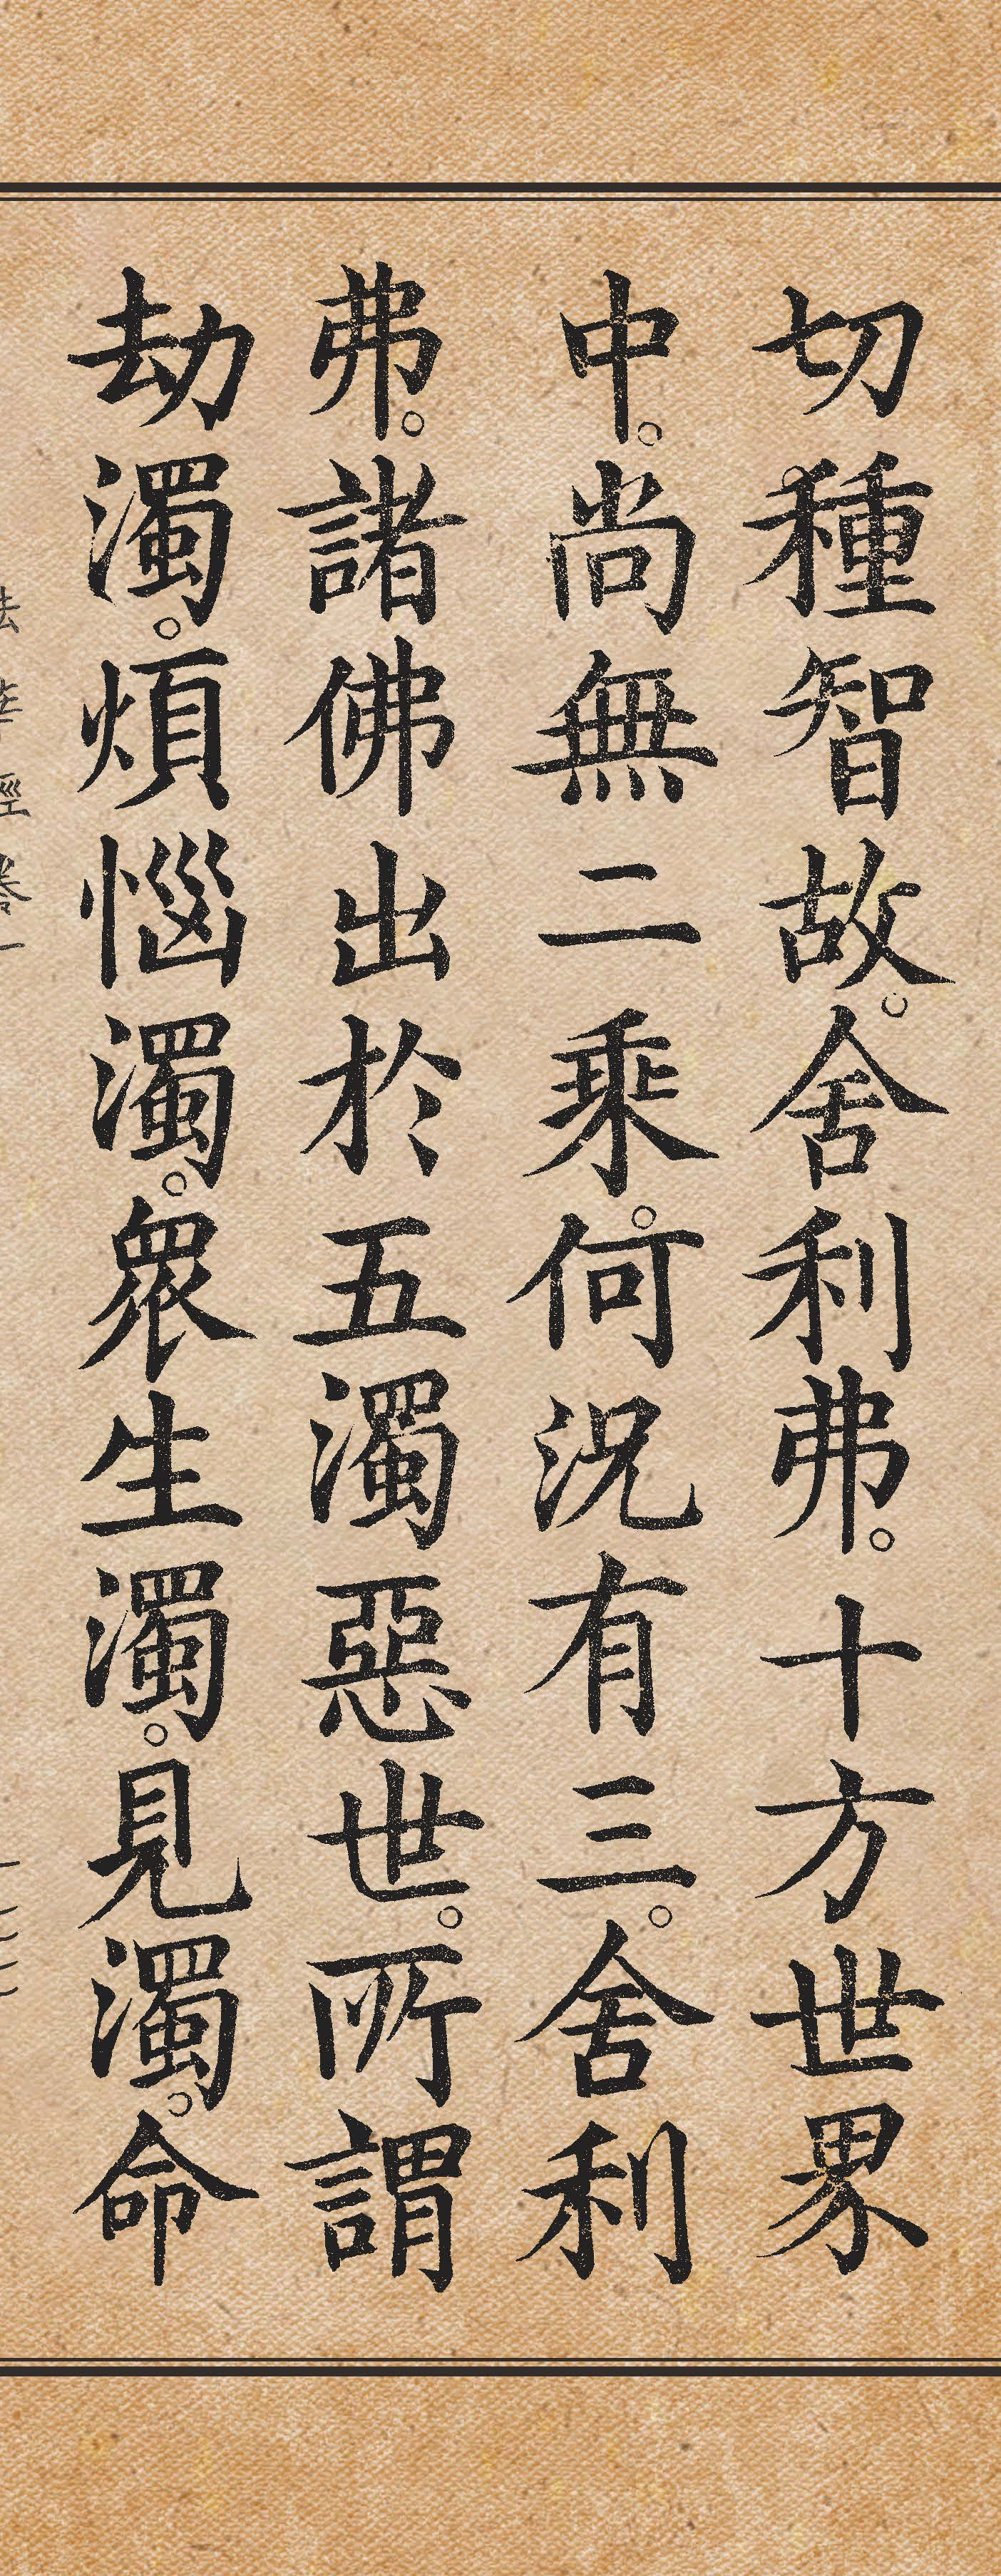 切種智故。舍利弗。十方世界
中。尚無二乘。何況有三。舍利
弗。諸佛出於五濁惡世。所謂
劫濁。煩惱濁。眾生濁。見濁。命